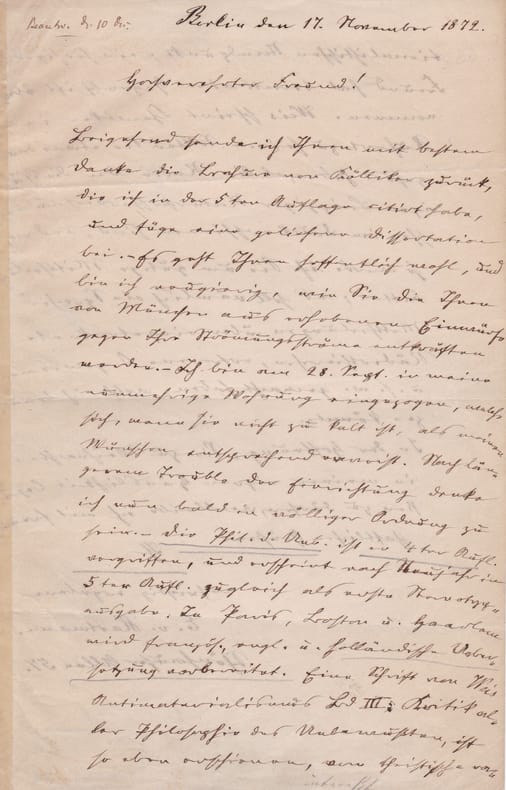 Beantw. d. 10 Dz.
Berlin den 17. November 1872.
Hochverehrter Freund!
Beigehend sende ich Ihnen mit bestem
Danke die Brochure von Kölliker zurück,
die ich in der 5.ten Auflage citirt habe,
und füge eine geliehene Dissertation
bei. – Es geht Ihnen hoffentlich wohl, und
bin ich neugierig, wie Sie die Ihnen
von München aus erhobenen Einwürfe
gegen Ihre Strömungsströme entkräften
werden. – Ich bin am 28. Sept. in meine
nunmehrige Wohnung eingezogen, welche
sich, wenn sie nicht zu kalt ist, als meinen
Wünschen entsprechend erweist. Nach län-
gerem Trouble der Einrichtung denke
ich nun bald in völliger Ordnung zu
sein. – Die Phil. d. Unb. ist in 4ter Aufl.
vergriffen, und erscheint nach Neujahr in
5ter Aufl. zugleich als erste Stereotyp-
ausgabe. In Paris, Boston u. Haarlem
wird französ., engl. u. holländische Ueber-
setzung vorbereitet. Eine Schrift von Weis
Antimaterialismus Bd III: Kritik al-
ler Philosophie des Unbewußten, ist
so eben erschienen, vom theistisch